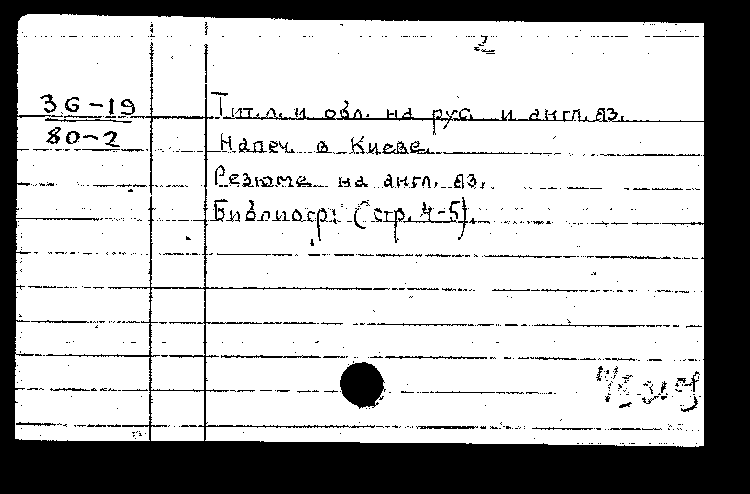 2
36-19
80-2
Тит. л. и обл. на рус. и англ. яз.
Напеч. в Киеве.
Резюме на англ. яз.
Библиогр: (стр. 4-5).